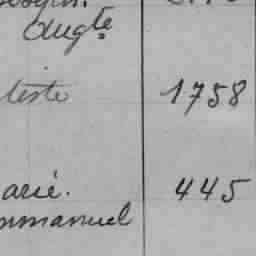 Augte
teste 1758
arié. 445
mmanuel